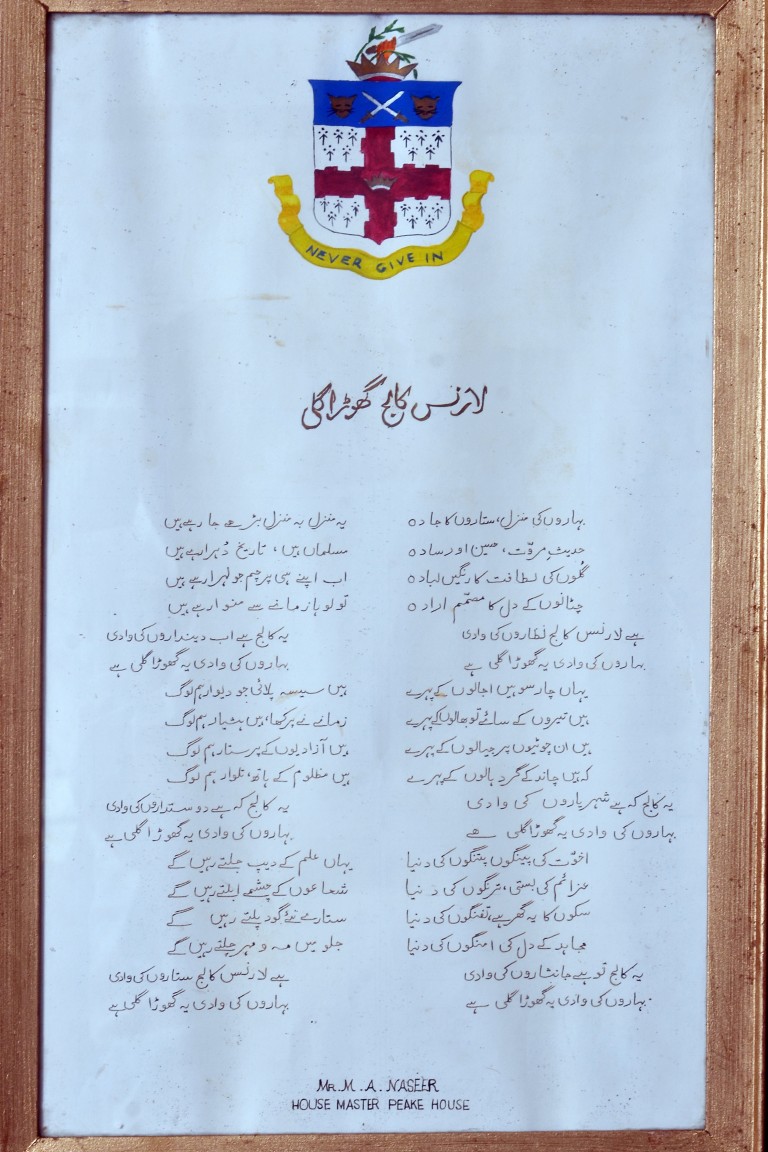 NEVER GIVE IN
لارنس کالج گھوڑا گلی
بہاروں کی منزل، ستاروں کا جادہ
حدیثِ مروّت، حسین اور سادہ
گلوں کی لطافت کا رنگیں لبادہ
چٹانوں کے دل کا مصمّم ارادہ
ہے لارنس کالج نظاروں کی وادی
بہاروں کی وادی یہ گھوڑا گلی ہے
یہ منزل بہ منزل بڑھے جا رہے ہیں
مسلماں ہیں، تاریخ دُہرا رہے ہیں
اب اپنے ہی پرچم جو لہرا رہے ہیں
تو لوہا زمانے سے منوا رہے ہیں
یہ کالج ہے اب دینداروں کی وادی
بہاروں کی وادی یہ گھوڑا گلی ہے
یہاں چار سو ہیں اجالوں کے پہرے
ہیں تیروں کے سائے تو بھالوں کے پہرے
ہیں ان چوٹیوں پر جیالوں کے پہرے
کہ ہیں چاند کے گرد ہالوں کے پہرے
یہ کالج کہ ہے شہریاروں کی وادی
بہاروں کی وادی یہ گھوڑا گلی ہے
ہیں سیسہ پلائی جو دیوار ہم لوگ
زمانے نے پرکھا، ہیں ہشیار ہم لوگ
ہیں آزادیوں کے پرستار ہم لوگ
ہیں مظلوم کے ہاتھ، تلوار ہم لوگ
یہ کالج کہ ہے دوستداروں کی وادی
بہاروں کی وادی یہ گھوڑا گلی ہے
اخوّت کی پینگوں پتنگوں کی دنیا
عزائم کی بستی، ترنگوں کی دنیا
سکوں کا یہ گھر ہے، تفنگوں کی دنیا
مجاہد کے دل کی امنگوں کی دنیا
یہ کالج تو ہے جانثاروں کی وادی
بہاروں کی وادی یہ گھوڑا گلی ہے
یہاں علم کے دیپ جلتے رہیں گے
شعاعوں کے چشمے ابلتے رہیں گے
ستارے نئے گود پلتے رہیں گے
جلو میں مہ و مہر چلتے رہیں گے
ہے لارنس کالج ستاروں کی وادی
بہاروں کی وادی یہ گھوڑا گلی ہے
MR. M. A. NASEER
HOUSE MASTER PEAKE HOUSE